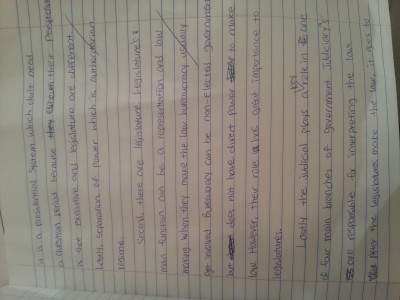 is a presidential system which dosle need
a question period because their
is the executive and legislature are different
Lastly, separation of power which is authoritarian
regime.
Second, there are legislature. Legislature's
main function can be a representation and law
making when they make the law bureaucracy usually
get involved. Bureaucracy can be non-elected government
but does not have direct power to make
law. However, their role is great importance to
legislatures.
Lastly the judicial plays a key role in one
of four main branches of government Judiciary's
are responsible for interpreting the law.
After the legislatures make the law, it goes to